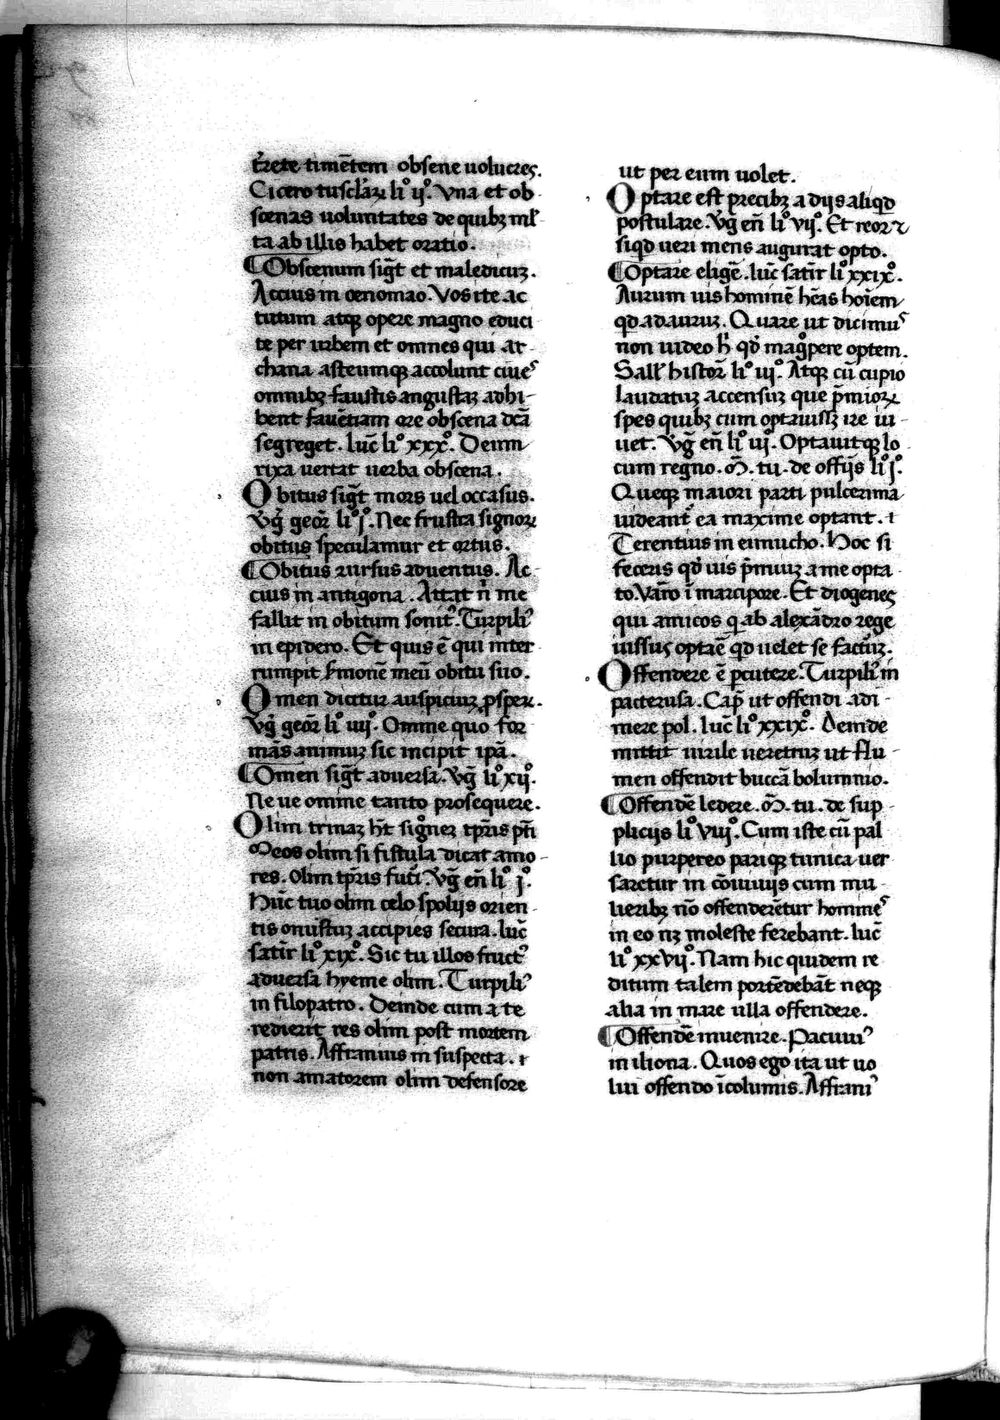 t̃rete timẽtem obſene uolucres.
Cicero tuſcl'aꝝ li° ij°. Vna et ob
ſcenas uoluntates de quibꝫ ml'
ta ab illis habet oratio.
¶Obſcenum ſigt̃ et maledicuꝫ.
Accius in oenomao. Vos ite ac
tutum atqꝫ opere magno educi
te per urbem et omnes qui ar
chana aſteumqꝫ accolunt ciues
omnibꝫ fauſtis anguſtaꝫ adhi-
bent fauẽtiam ore obſcena dc̃a
ſegreget. luc̃ li° xxx°. Deum
rixa uertat uerba obſcena.
Obitus ſigt̃ mors uel occaſus.
Vg̃ geor̃ li° j°. Nec fruſtra ſignoꝝ
obitus ſpeculamur et ortus.
¶Obitus rurſus aduentus. Ac-
cius in antigona. Attat ñ me
fallit in obitum ſonit᾽. Turpili᾽
in epidero. Et quis ẽ qui inter
rumpit ſ̃monẽ meũ obitu ſuo.
Omen dicitur auſpiciuꝫ ꝓſperꝫ.
Vg̃ geor̃ li° iiij°. Omine quo for
mãs animuꝫ ſic incipit ipã.
¶Omen ſigt̃ aduerſa. Vg̃ li° xij°.
Ne ue omine tanto proſequere.
Olim trinaꝫ ht̃ ſigñeꝫ tp̃ris pt̃i
Meos olim ſi fiſtula dicat amo-
res. Olim tp̃ris futi᾽. Vg̃ eñ li° j°.
Hũc tuo olim celo ſpolijs orien-
tis onuſtuꝫ accipies ſecura. luc̃
ſatir̃ li° xix°. Sic tu illos fruct᾽
aduerſa hyeme olim. Turpili᾽
in filopatro. Deinde cum a te
redierit res olim poſt mortem
patris. Affranius in ſuſpecta. ı
non amatorem olim defenſore
ut per eum uolet.
Optare eſt precibꝫ a dijs aliqd
poſtulare. Vg̃ eñ li° vij°. Et reor ⁊
ſiqd ueri mens augurat opto.
¶Optare eligẽ. luc̃ ſatir̃ li° xxix°.
Aurum uis hominẽ hẽas hoĩem
qd ad auruꝫ. Quare ut dicimus
non uideo h̃ qd magͦpere optem.
Sall' hiſtor̃ li° iij°. Atqꝫ cũ cupio
laudatuꝫ accenſuꝫ que p̃mioꝝ
ſpes quibꝫ cum optauiſſꝫ ire ui
uet. Vg̃ eñ li° iij°. Optauitqꝫ lo
cum regno. M̃. tu. de offijs li° j°.
Queqꝫ maiori parti pulcerima
uideant᾽ ea maxime optant. ı
Terentius in eunucho. Hoc ſi
feceris qd uis p̃miuꝫ a me opta
to. Varro ĩ marcipore. Et diogenes
qui amicos q ab alexãdro rege
iuſſus optaẽ qd uelet ſe factuꝫ.
Offendere ẽ ꝑcutere. Turpili᾽ in
pacterusa. Cap̃ ut offendi adi-
mere pol. luc̃ li° xxix°. Demde
mittit uirile ueretruꝫ ut flu-
men offendit buccã bolumnio.
¶Offendẽ ledere. M̃. tu. de ſup-
plicijs li° viij°. Cum iſte cũ pal
lio purpereo pariqꝫ tunica uer
ſaretur in cõiuiijs cum mu
lieribꝫ nõ offenderẽtur homines
in eo nꝫ moleſte ferebant. luc̃
li° xxvij°. Nam hic quidem re
ditum talem portẽdebãt neqꝫ
alia in mare ulla offendere.
¶Offendẽ inuenire. Pacuui᾽
in iliona. Quos ego ita ut uo
lui offendo ĩcolumis. Affrani᾽